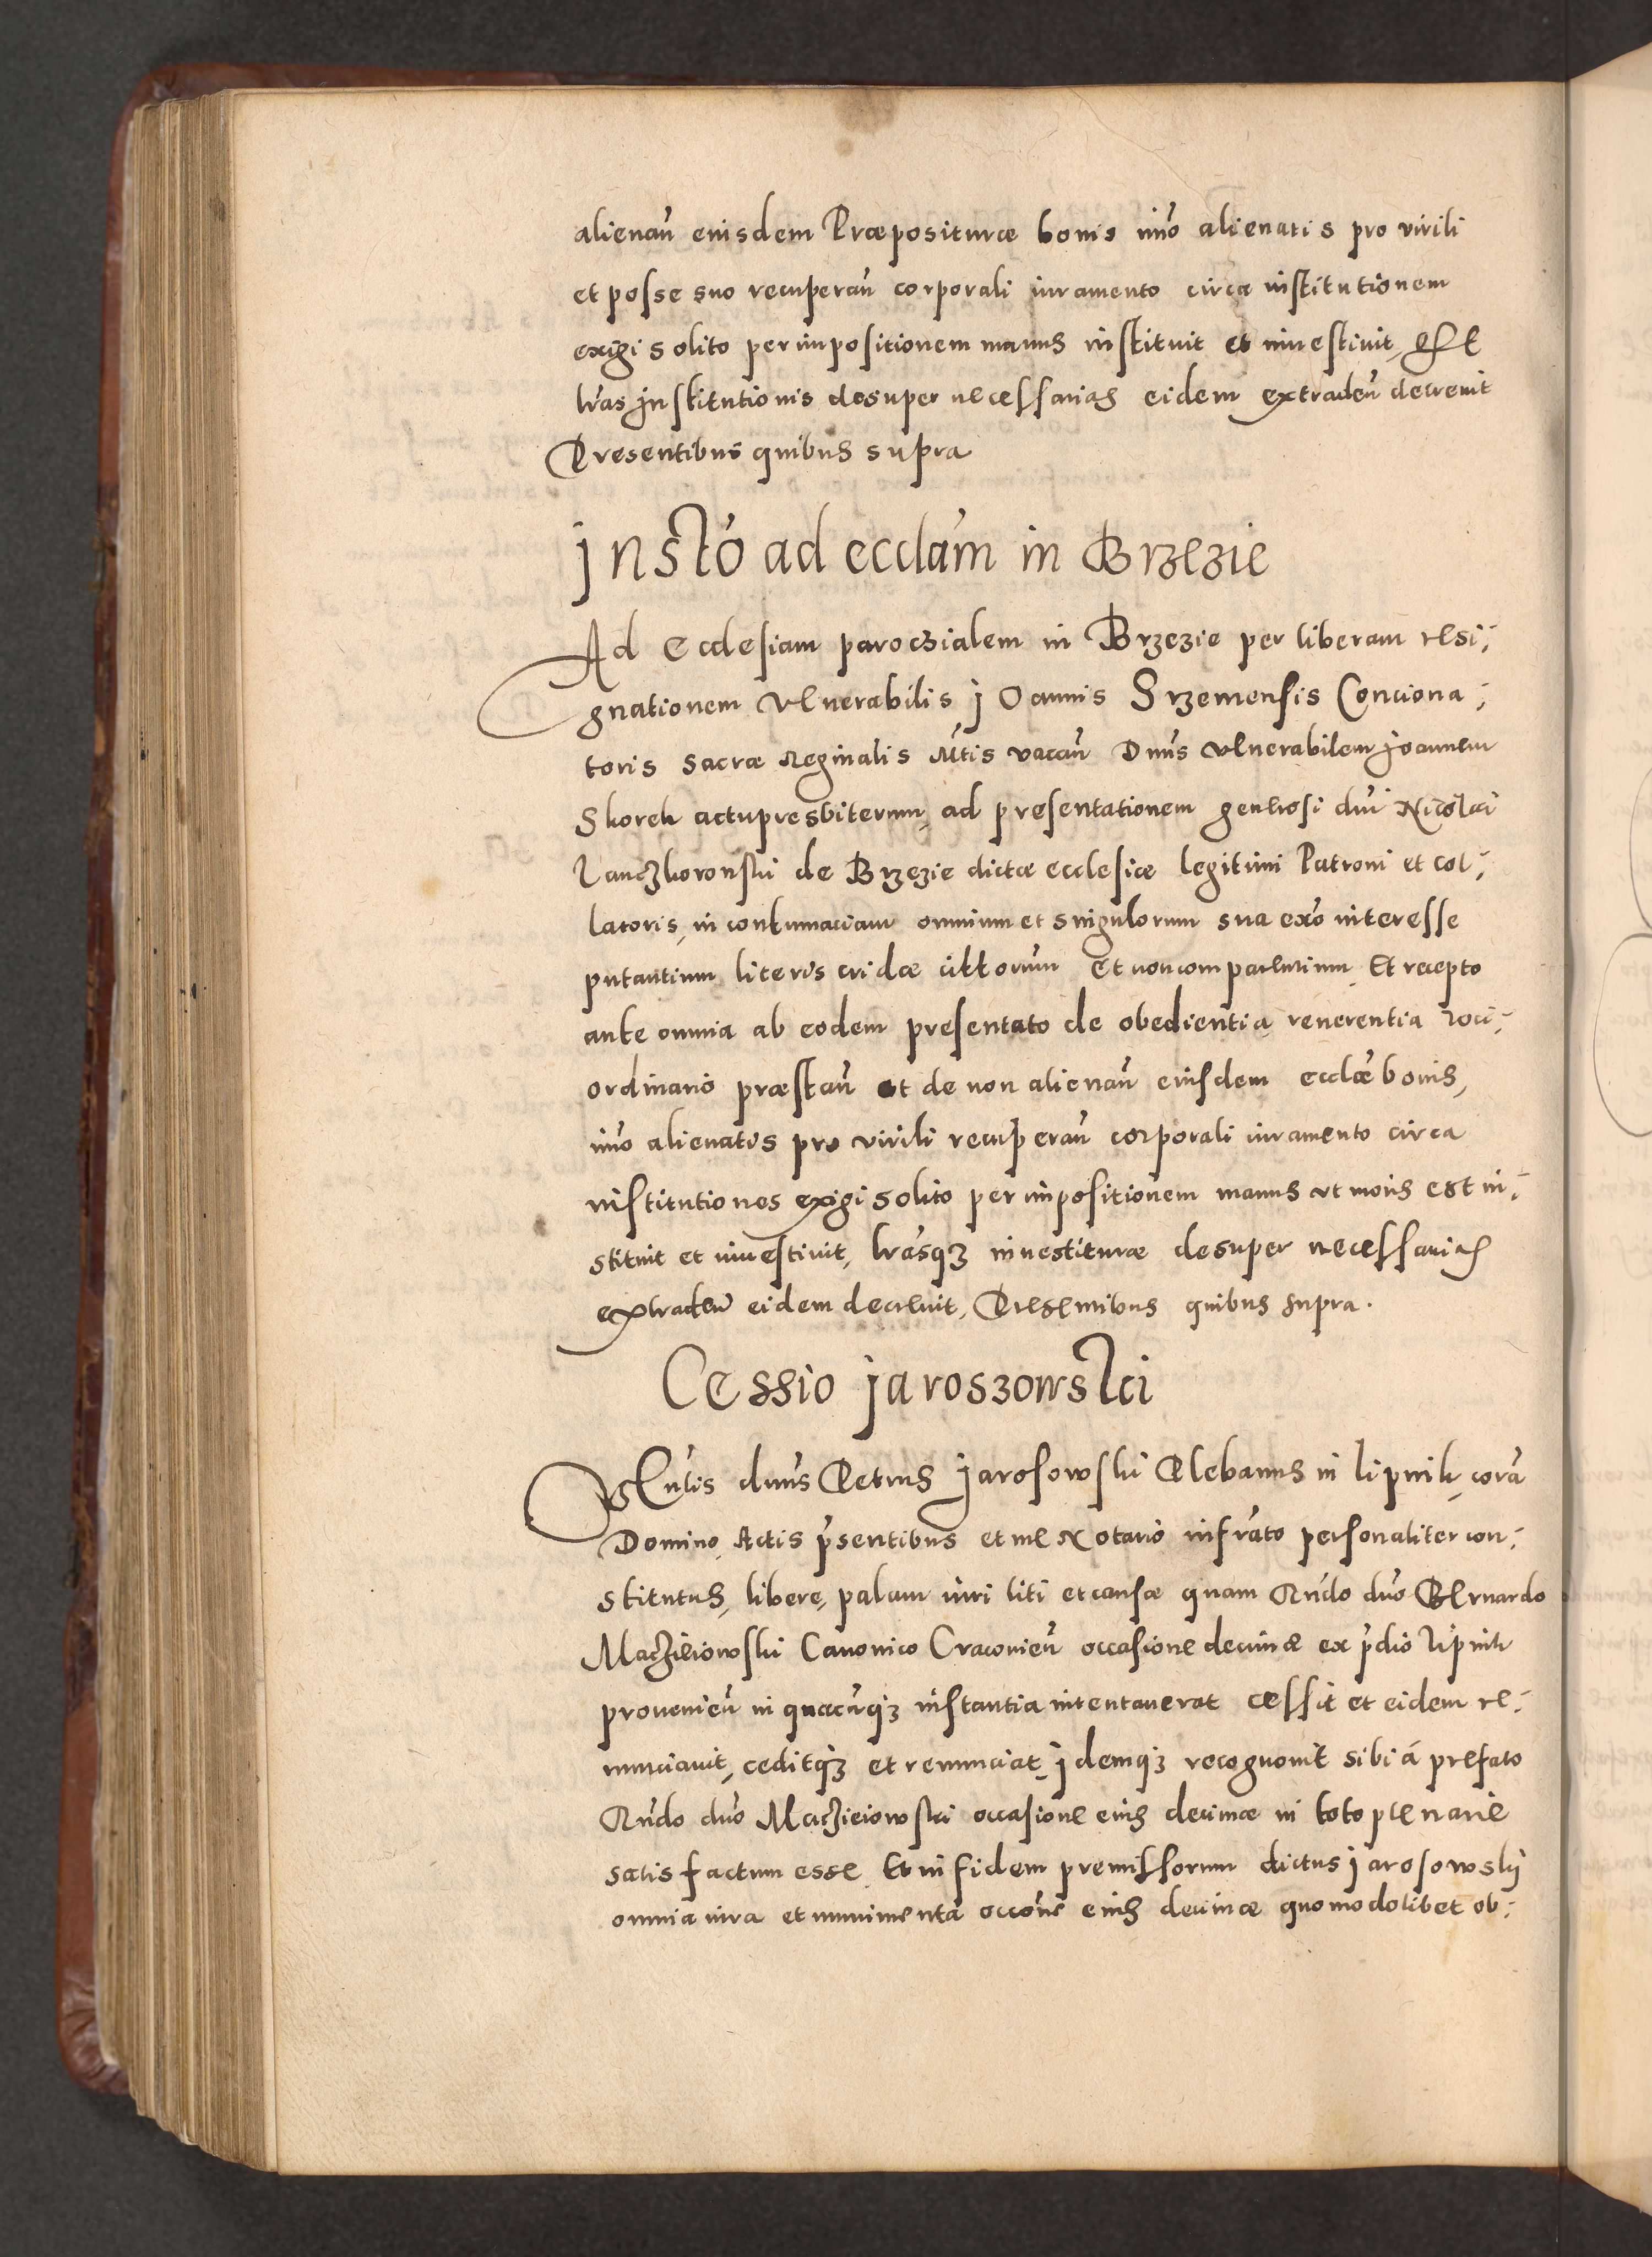 alienan̄ eiusdem Præpositurae bonis im̄o alienatis pro virili
et posse suo recuperan̄ corporali iuramento circa institutionem
exigi solito per impositionem manus instituit et investiuit, Et
lr̄as Institutionis desuper necessarias eidem extraden̄ decreuit
Presentibus quibus supra
Instō ad eccl̄am in Brzezie
Ad Ecclesiam parochialem in Brzezie per liberam resi-
gnationem Venerabilis Joannis Srzemensis Conciona-
toris Sacræ Reginalis M̄tis vacan̄ Dn̄s venerabilem Joannem
Skorek actu presbiterum, ad presentationem generosi dn̄i Nicolai
Lanczkoronski de Brzezie dictæ ecclesiæ legitimi Patroni et col-
latoris, in contumaciam omnium et singulorum sua ex̄o interesse
putantium literis cridæ citatorum et non comparentium. Et recepto
ante omnia ab eodem presentato de obedientia reuerentia loci
ordinario præstan̄ et de non alienan̄ eiusdem eccl̄æ bonis,
im̄o alienatis pro virili recuperan̄ corporali iuramento circa
institutiones exigi solito per impositionem manus ut moris est in-
stituit et inuestiuit, lr̄asq3 inuestituræ desuper necessarias
extraden̄ eidem decreuit, Presentibus quibus supra.
Cessio Jaroszowski
Ven̄lis dn̄us Petrus Jarosowski Plebanus in Lipnik, corā
Domino, Actis p̄sentibus et me Notario infr̄ato personaliter con-
stitutus, libere, palam iuri liti et causæ quam Rn̄do dn̄o Bernardo
Maczieiowski Canonico Cracouien̄ occasione decimæ ex p̄dio Lipnik
prouenien̄ in quacūq3 instantia intentauerat cessit et eidem re-
nunciauit, ceditq3 et renunciat. Idemq3 recognouit sibi á prefato
Rn̄do dn̄o Maczieiowski occasione eius decimæ in toto plenarie
satisfactum esse. Et in fidem premissorum dictus Jarosowskj
omnia iura et munimenta occōne eius decimæ quomodolibet ob-